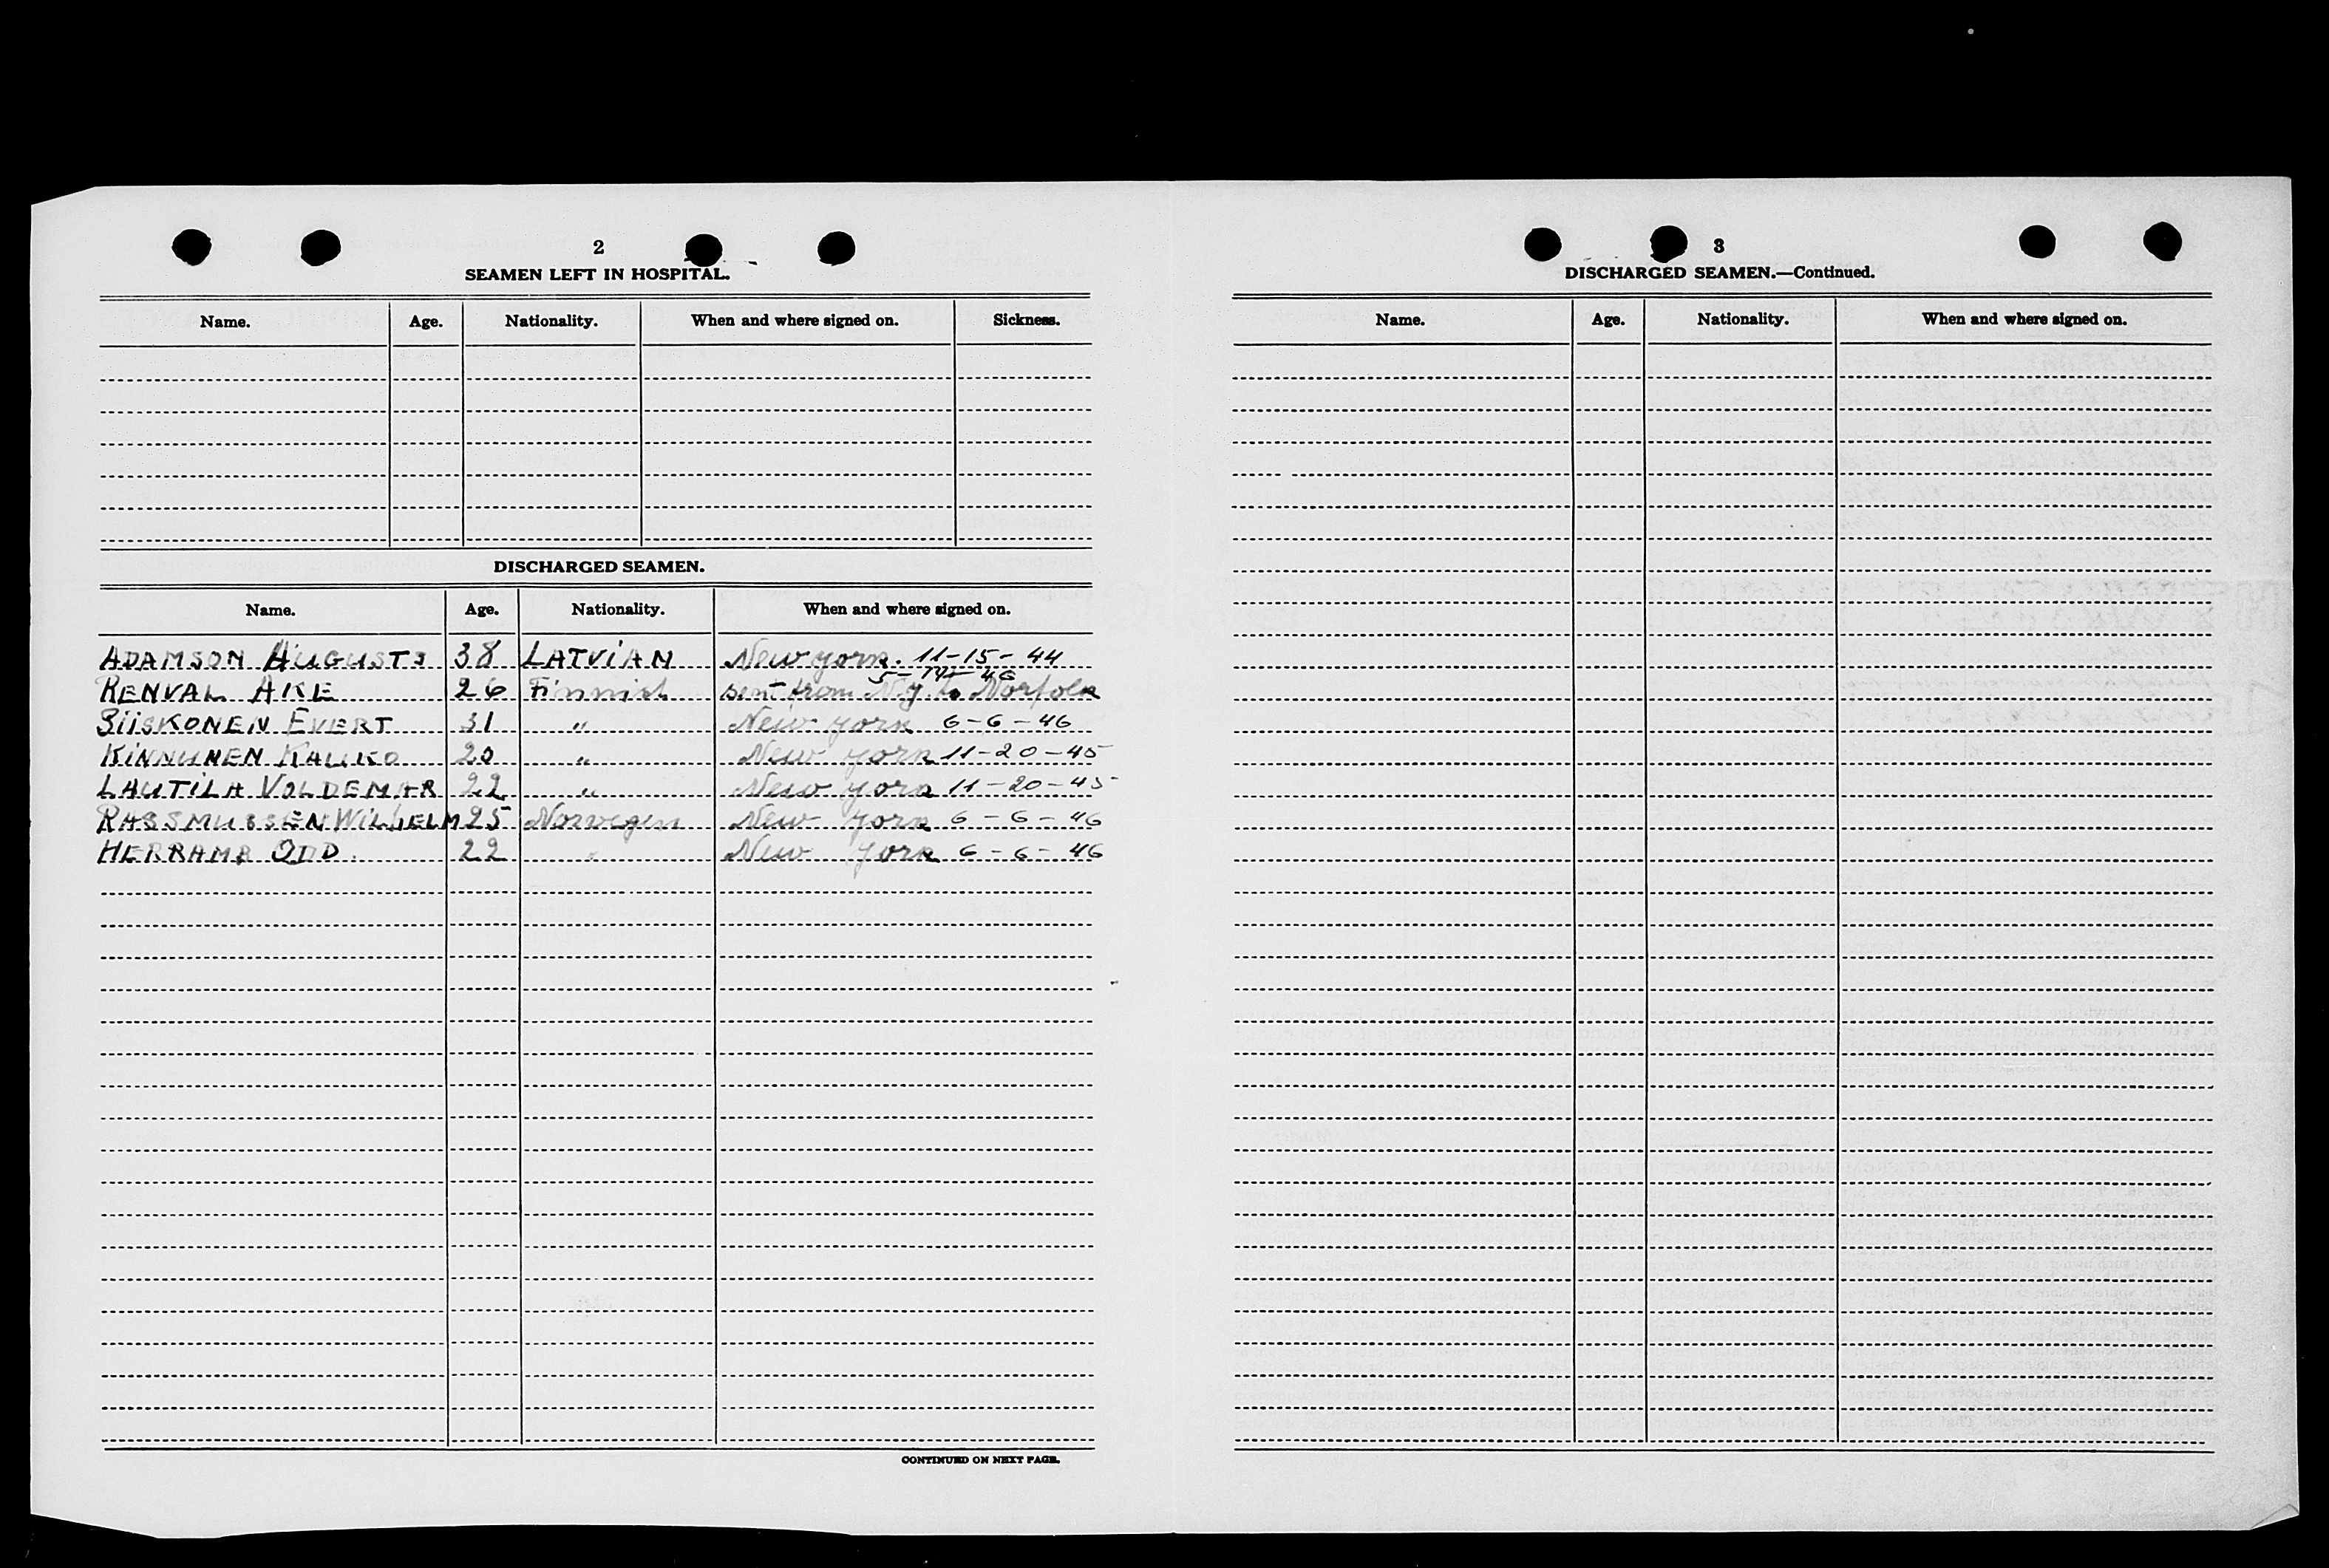 2
SEAMEN LEFT IN HOSPITAL.
Name. Age. Nationality. When and where signed on. Sickness.
DISCHARGED SEAMEN.
Name. Age. Nationality. When and where signed on.
ADAMSON AUGUSTS 38 LATViAN New york. 11-15-44
5-14-46
RENVAL AKE 26 Finnish sent from N.y. to Norfolk
SiiSKONEN EVERT 31 " New york 6-6-46
KiNNUNEN KAUKO 20 " New york 11-20-45
LAUTiLA VOLDEMAR 22 " New york 11-20-45
RASSMUSSEN WiLhELM 25 Norwegen New York 6-6-46
ODD 22 " New York 6-6-46
CONTINUED ON NEXT PAGE.
3
DISCHARGED SEAMEN.—Continued.
Name. Age. Nationality. When and where signed on.